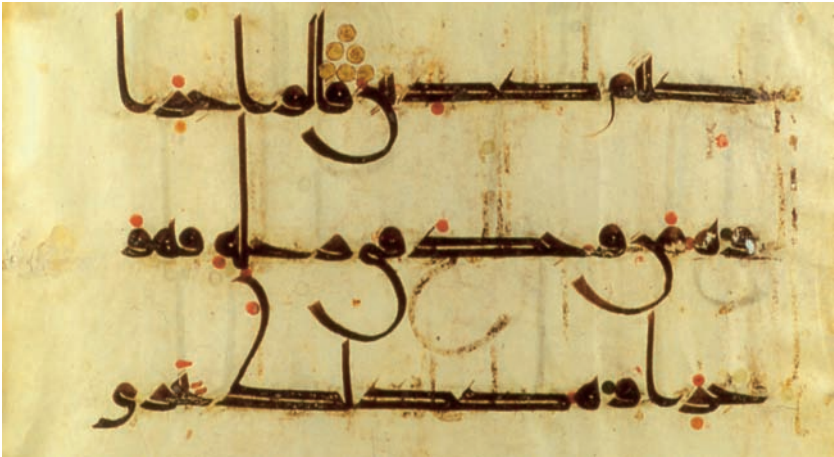 كنتم كذبين قالوا جزا
وه من وجد في رحله فهو
جزاوه كذلك نجزي